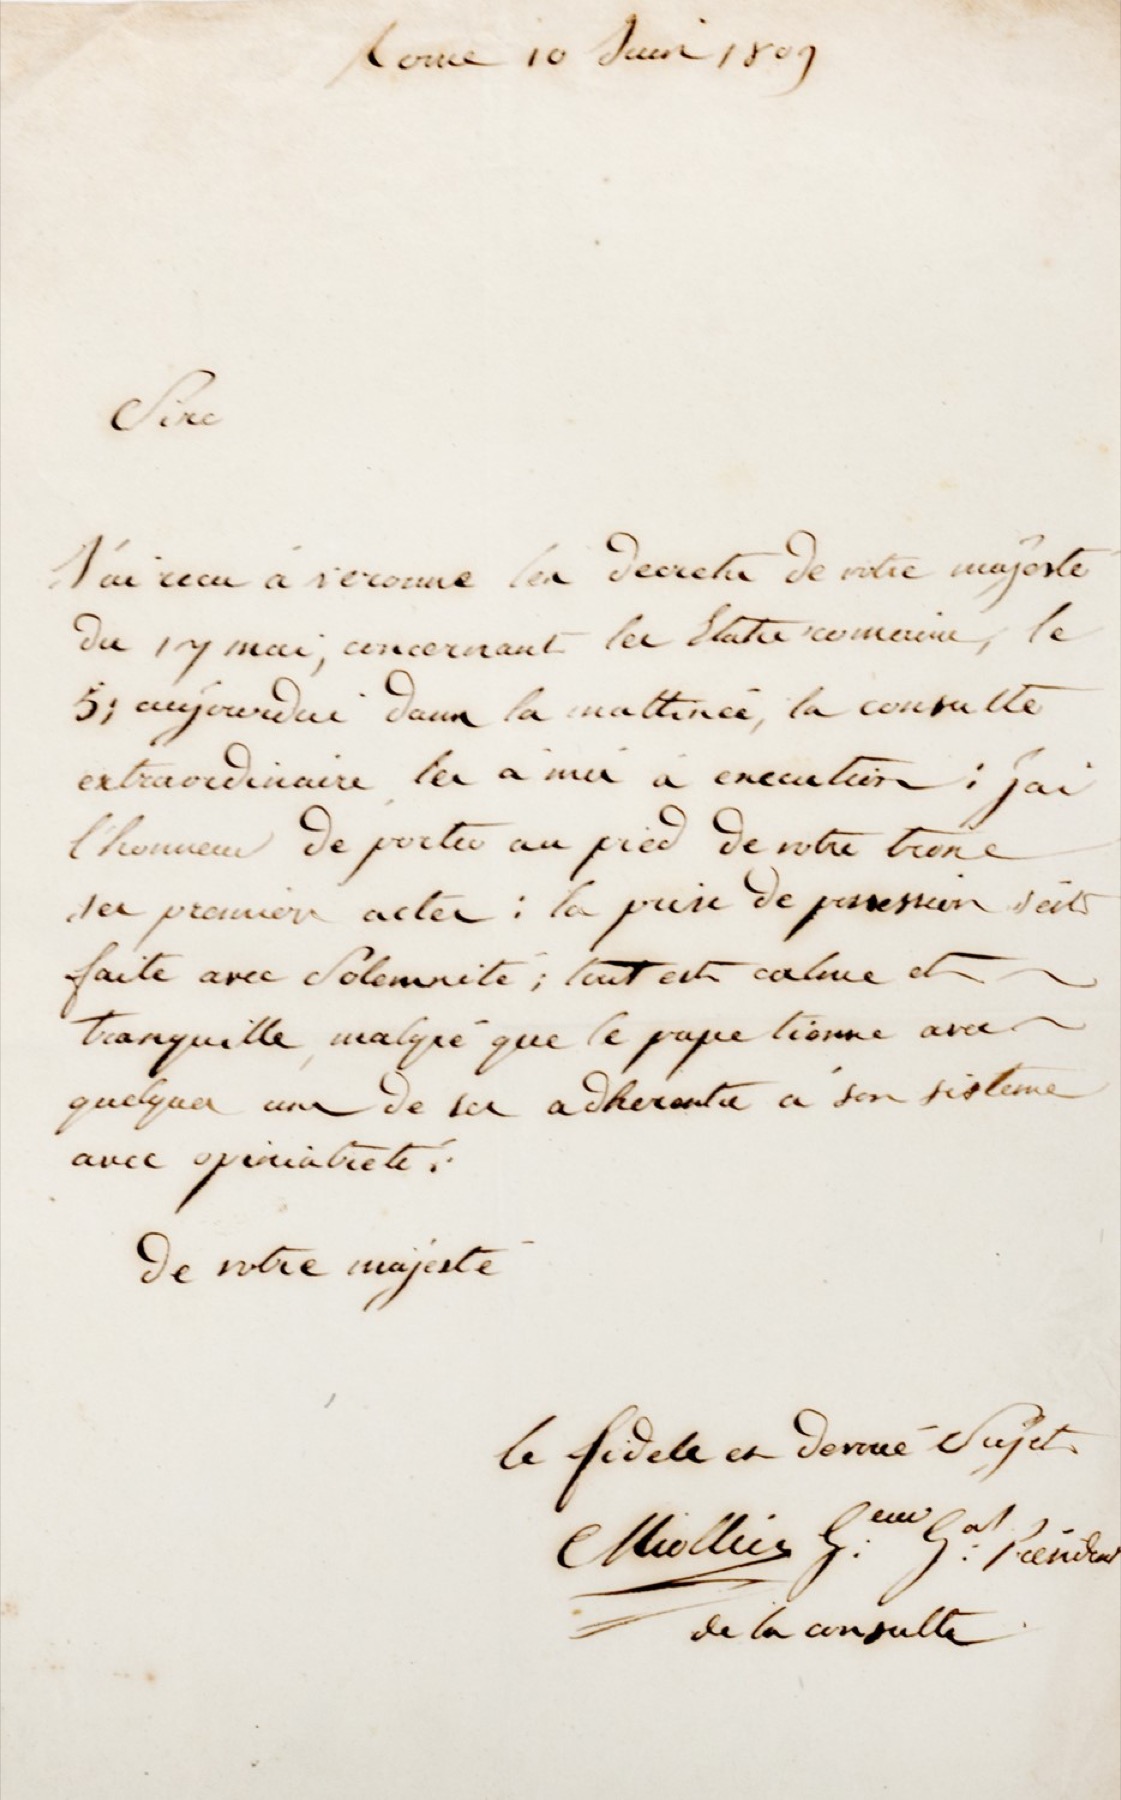 Rome 10 Juin 1809
Sire
J'ai recu à veronne les decrets de votre majésté
du 17 mai, concernant les Etats romains, le
5; aujourdui dans la mattinée, la consulte
extraordinaire les a mis a execution; j'ai
l'honneur de porter au pied de votre trone
ses premiers actes: la prise de possession s'est
faite avec Solemnité; tout est calme et
tranquille, malgré que le pape tienne avec
quelques uns de ses adherents a son sisteme
avec opiniatreté.
de votre majésté
le fidele et devoué Sujet
Miollis G: eur G: al Président
de la consulte